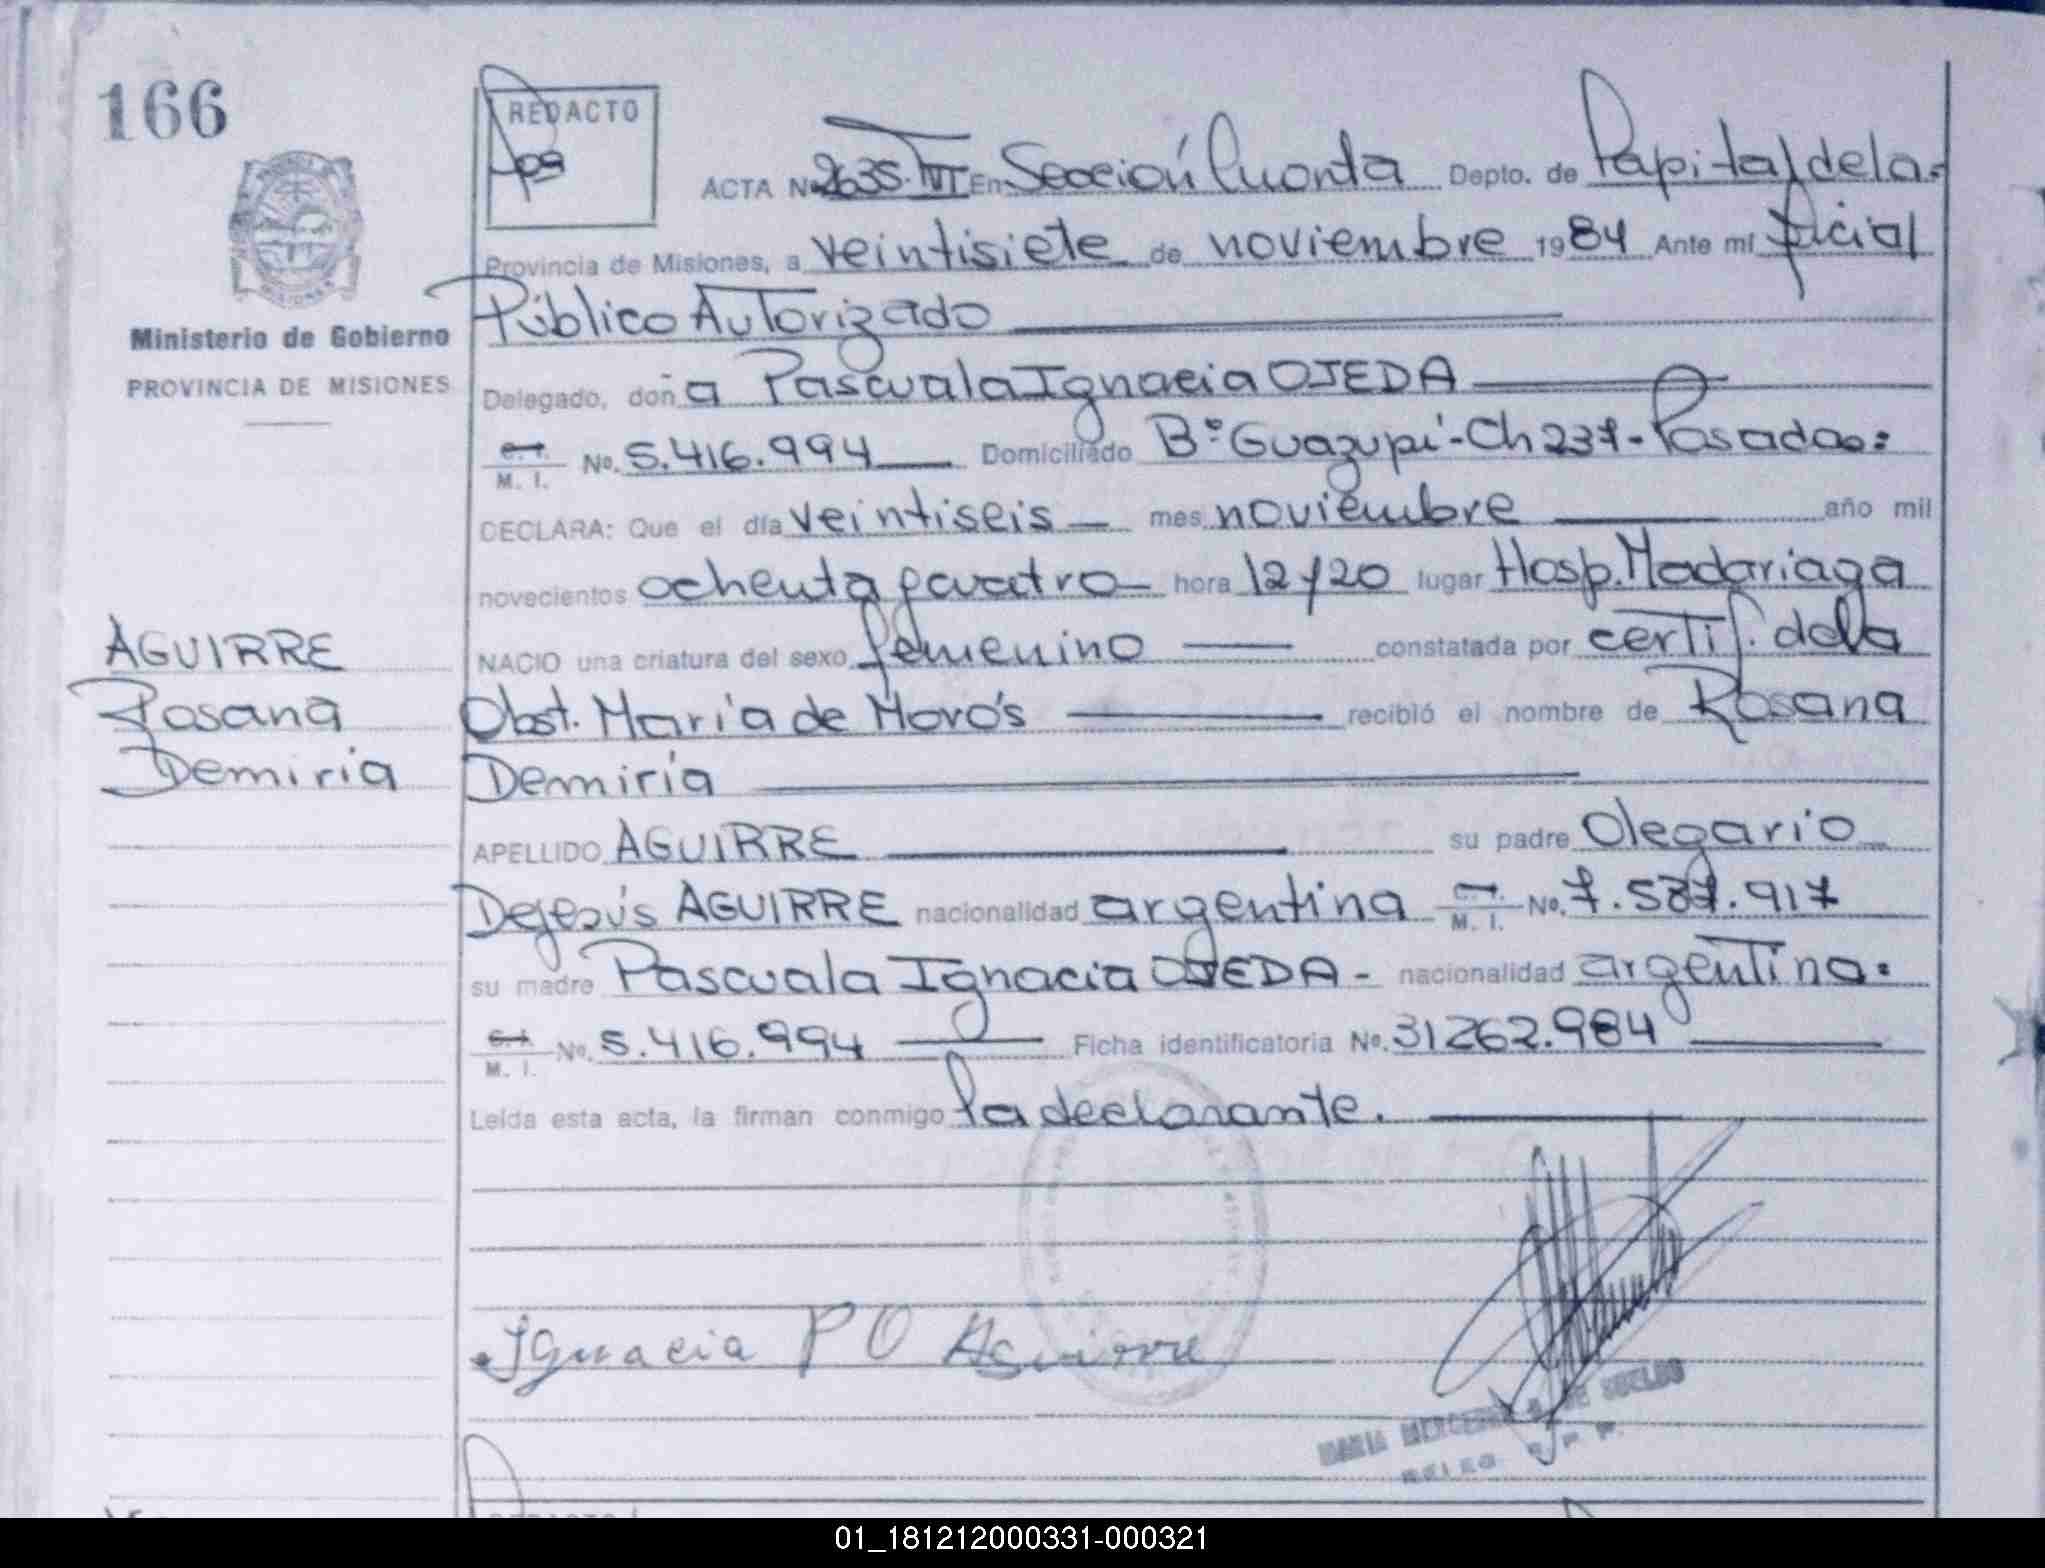 166
REDACTO
ACTA Nº 2635. TVI En Sección Cuarta Depto. de Capital de la
Provincia de Misiones, a veintisiete de noviembre 1984 Ante mí Oficial
Público Autorizado
Ministerio de Gobierno
PROVINCIA DE MISIONES
Delegado, doña Pascuala Ignacia OJEDA
C.I. M. I. No. 5.416.994 Domiciliado Bº Guazupí - Ch 237 - Posadas
DECLARA: Que el día veintiseis mes noviembre año mil
novecientos ochenta y cuatro hora 12 y 20 lugar Hosp. Madariaga
NACIO una criatura del sexo femenino constatada por certif. de la
Obst. María de recibió el nombre de Rosana
Demiria
AGUIRRE
Rosana
Demiria
APELLIDO AGUIRRE su padre Olegario
Dejesús AGUIRRE nacionalidad argentina C.I. M. I. No. 7.587.917
su madre Pascuala Ignacia OJEDA - nacionalidad argentina
C.I. M. I. No. 5.416.994 Ficha identificatoria No. 31262.984
Leída esta acta, la firman conmigo la declarante.
Ignacia P O Aguirre
MARIA
01_181212000331-000321